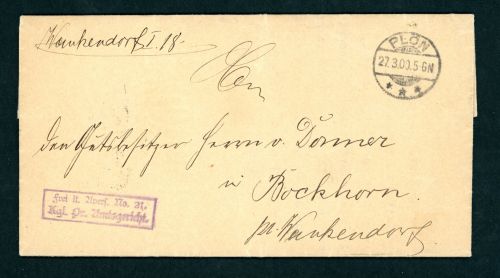 Wankendorf I. 18.
PLÖN
27.3.00.5-6N
An
den Gutsbesitzer Herrn v. Donner
in
Bockhorn.
pr. Wankendorf.
Frei lt. Avers. No. 21.
Kgl. Pr. Amtsgericht.